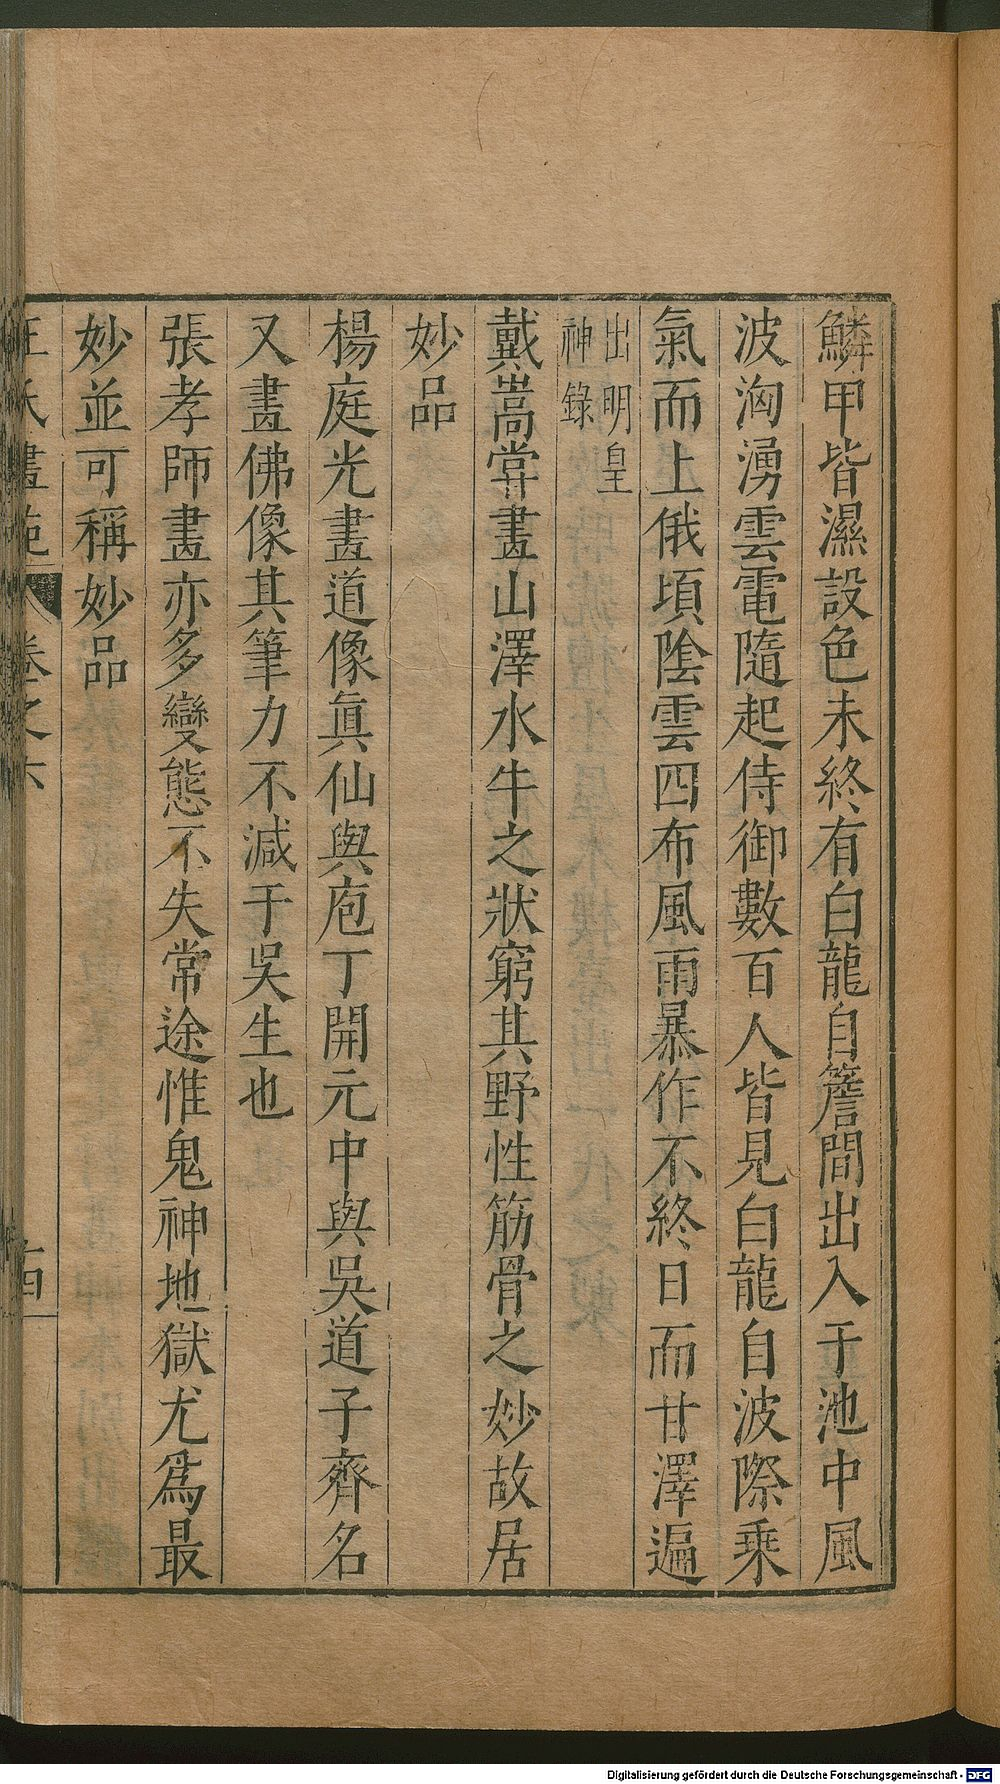 鱗甲皆濕設色未終有白龍自簷間出入于池中風
波洶湧雲電隨起侍御數百人皆見白龍自波際乗
氣而上俄頃陰雲四布風雨暴作不終日而甘澤遍
出明皇
神錄
戴嵩甞畫山澤水牛之狀窮其野性筋骨之妙故居
妙品
楊庭光畫道像眞仙與庖丁開元中與吳道子齊名
又畫佛像其筆力不減于吳生也
張孝師畫亦多變態不失常途惟鬼神地獄尤爲最
妙並可稱妙品
王氏畫苑 卷之六
Digitalisierung gefördert durch die Deutsche Forschungsgemeinschaft - DFG